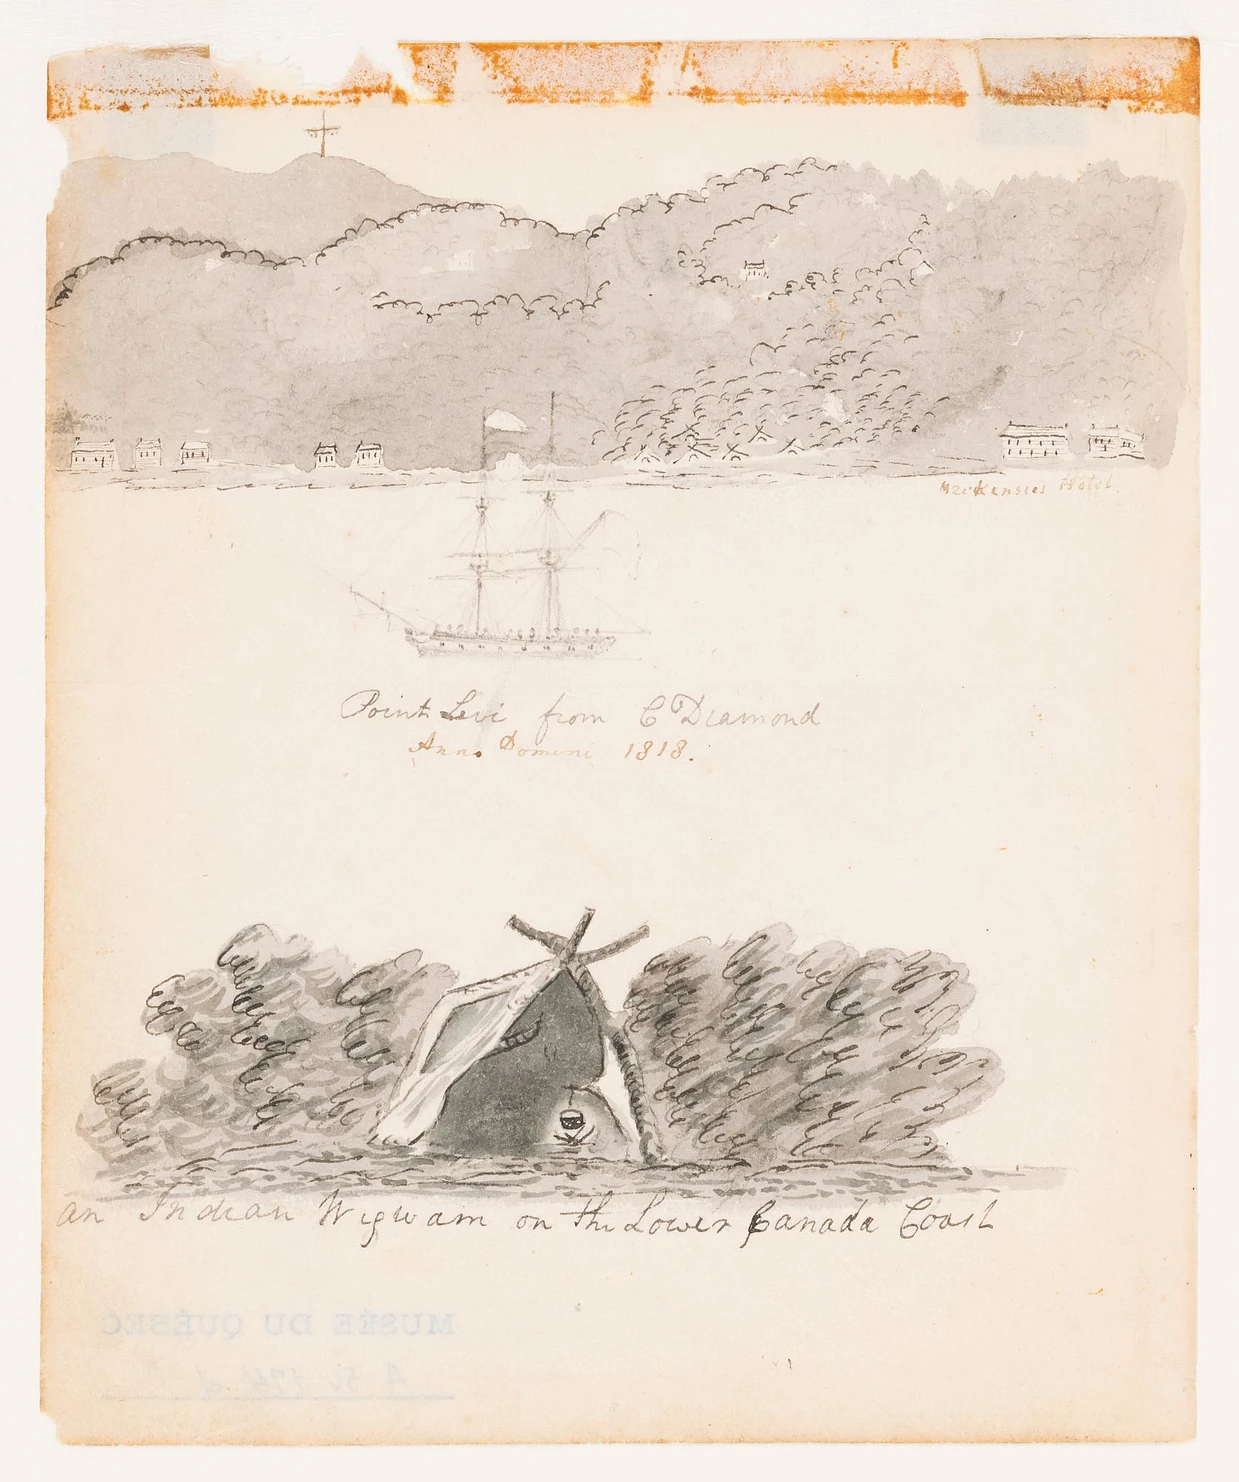 MacKensies Hotel
Point Levi from C Diamond
Anno Domini 1818.
an Indian Wigwam on the Lower Canada Coast
MUSÉE DU QUÉBEC